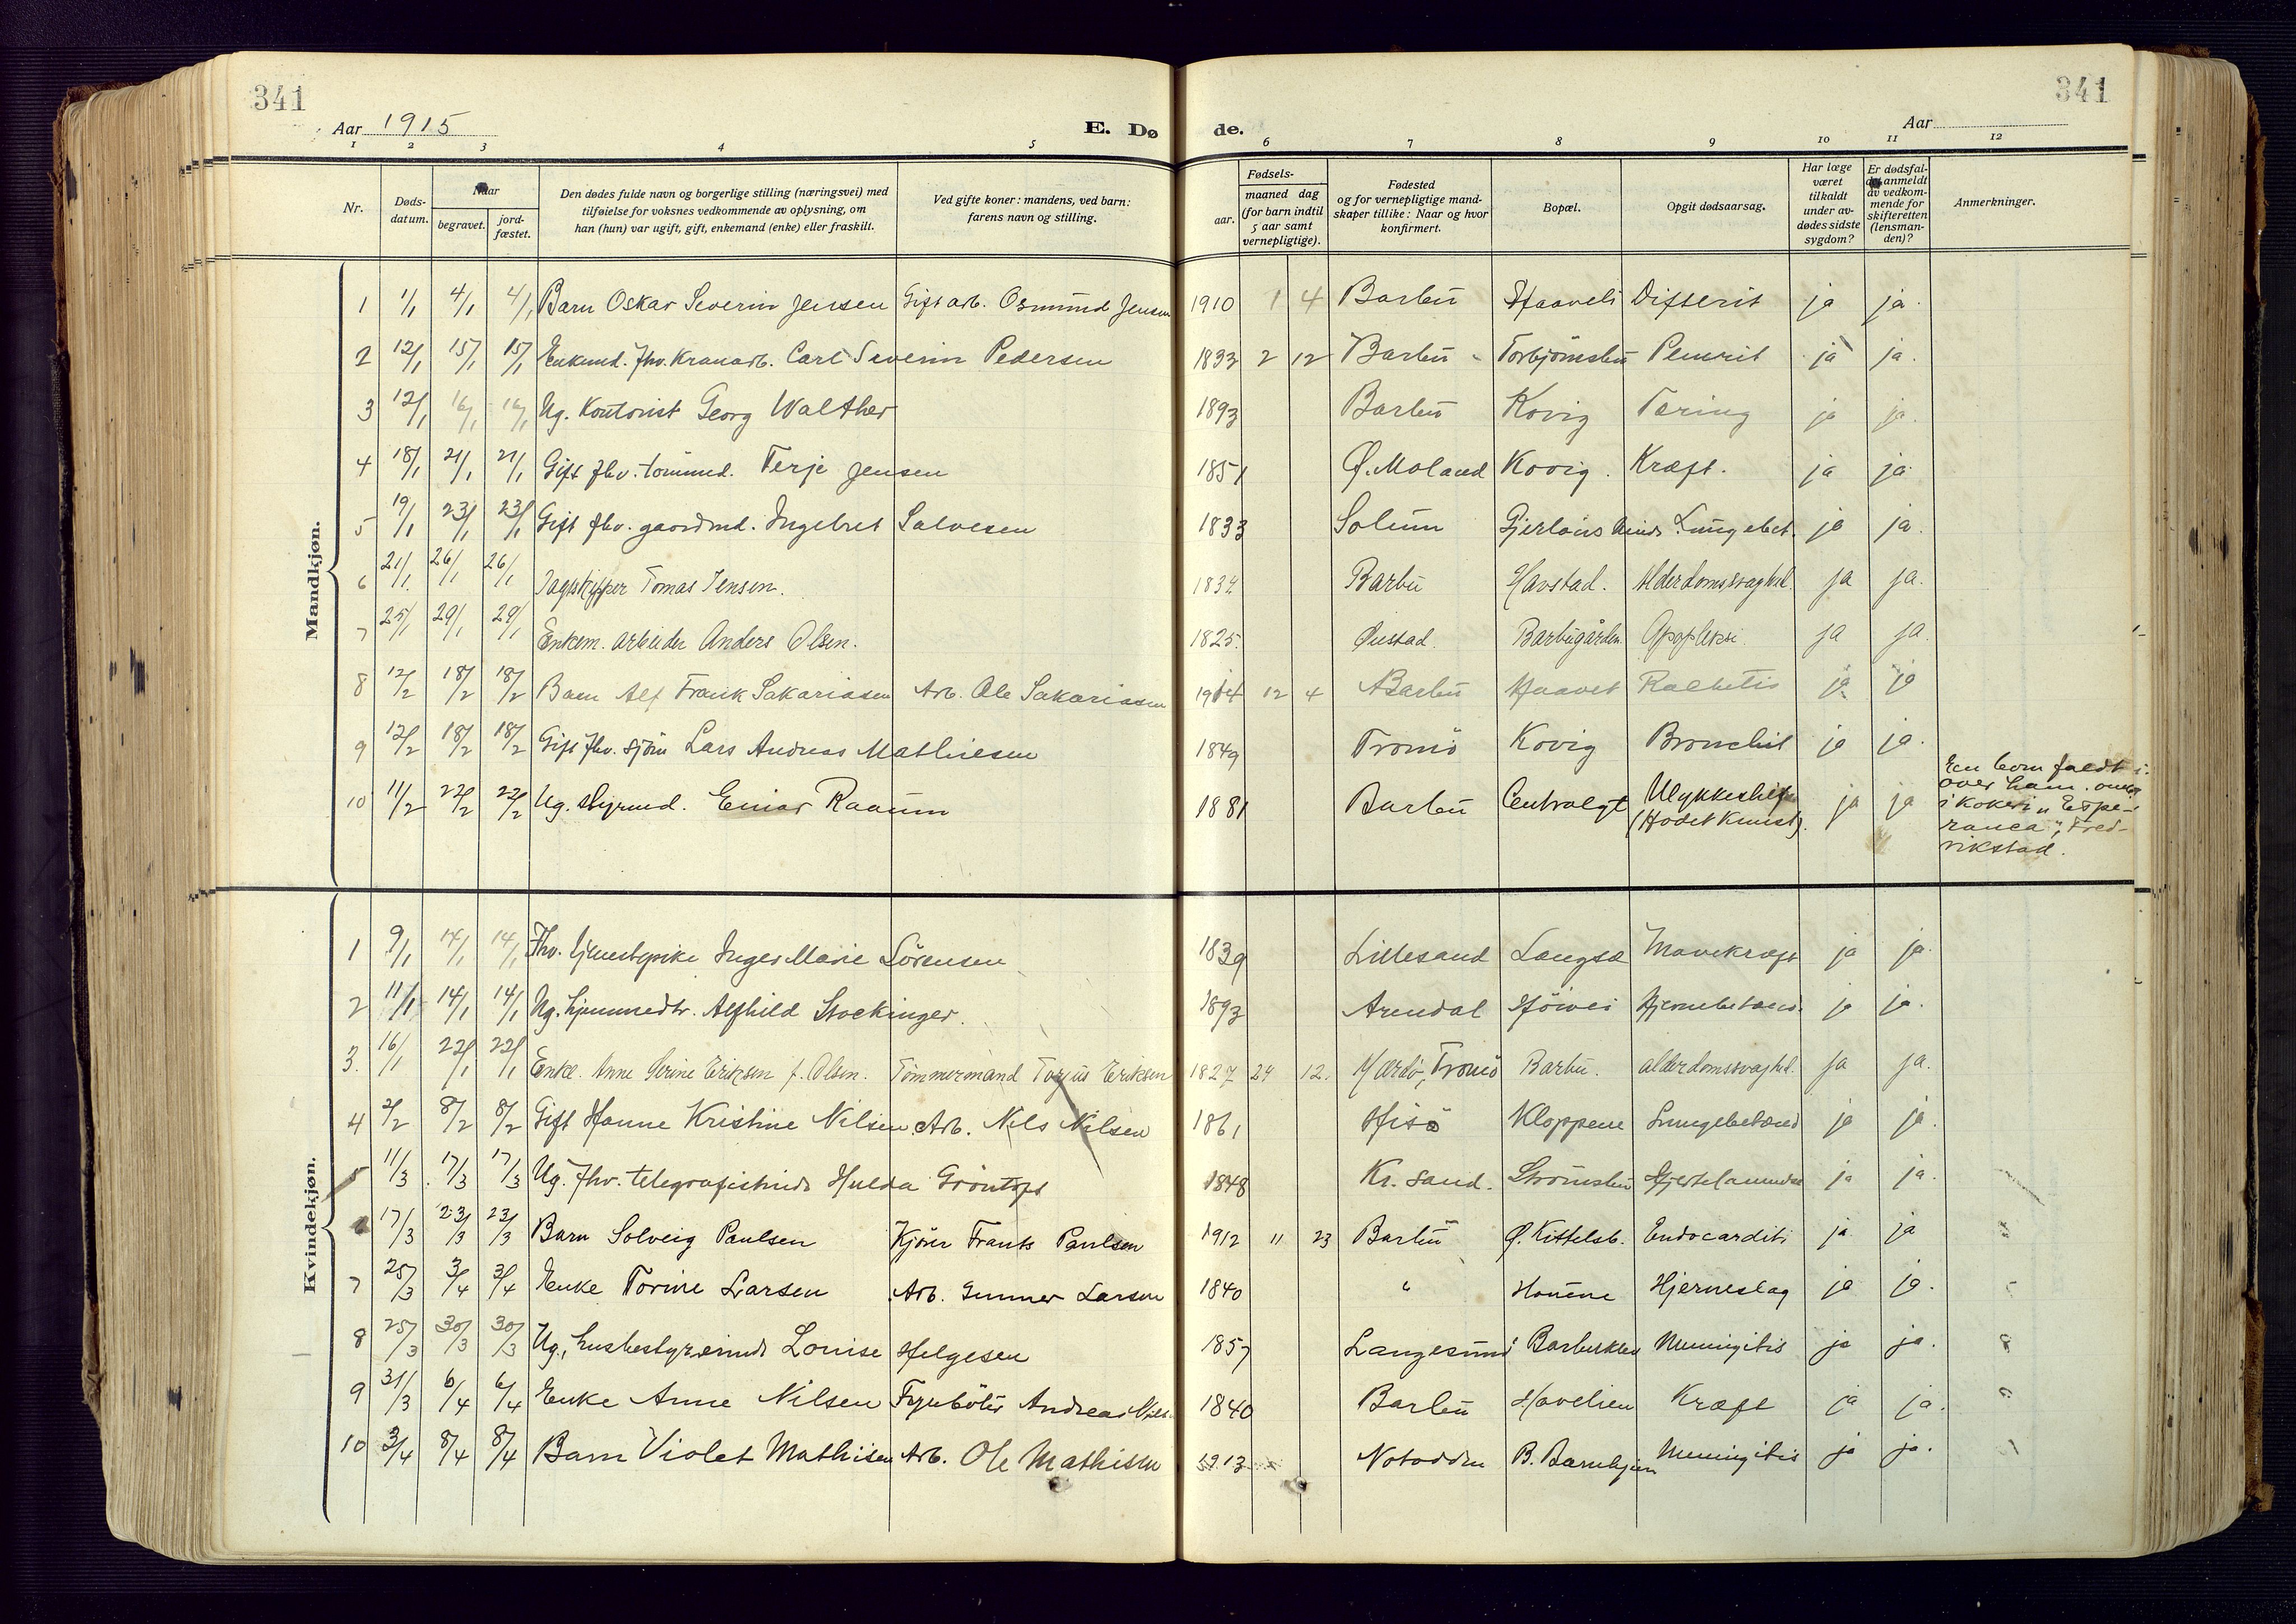 341
341
Aar 1915
E. Dø
de.
Aar
1 2 3 4 5 6 7 8 9 10 11 12
Nr.
Døds-
datum.
Naar
begravet.
jord-
fæstet.
Den dødes fulde navn og borgerlige stilling (næringsvei) med
tilføielse for voksnes vedkommende av oplysning, om
han (hun) var ugift, gift, enkemand (enke) eller fraskilt.
Ved gifte koner: mandens, ved barn:
farens navn og stilling.
Fødsels-
aar.
maaned dag
(for barn indtil
5 aar samt
vernepligtige).
Fødested
og for vernepligtige mand-
skaper tillike: Naar og hvor
konfirmert.
Bopæl.
Opgit dødsaarsag.
Har læge
været
tilkaldt
under av-
dødes sidste
sygdom?
Er dødsfal-
det anmeldt
av vedkom-
mende for
skifteretten
(lensman-
den)?
Anmerkninger.
Mandkjøn.
1 1/1 4/1 4/1 Barn Oskar Severin Jensen Gift arb. Osmund Jensen 1910 1 4 Barbu Haaveli Difterit ja ja.
2 12/1 15/1 15/1 Enkemd. fhv. Kranarb. Carl Severin Pedersen 1833 2 12 Barbu Torbjörnsbu Pleurit ja ja.
3 12/1 16/1 16/1 Ug. Kontorist Georg Walther 1893 Barbu Kovig Tæring ja ja.
4 18/1 21/1 21/1 Gift fhv. tømmmd. Terje Jensen 1851 Ø. Moland Kovig. Kræft. ja ja.
5 19/1 23/1 23/1 Gift fhv. gaardmd. Ingebret Salvesen 1833 Solum Lungebet. ja ja.
6 21/1 26/1 26/1 Jagtskipper Tomas Jensen. 1834 Barbu Havstad. Alderdomssvaghd. ja ja.
7 25/1 29/1 29/1 Enkem. arbeider Anders Olsen. 1825. Øiestad. Barbugården. Apopleksi ja ja.
8 12/2 18/2 18/2 Barn Alf Frank Sakariasen Arb. Ole Sakariasen 1914 12 4 Barbu Haavet Rachitis ja ja
9 12/2 18/2 18/2 Gift fhv. sjöm Lars Andreas Mathiesen 1849 Tromö Kovig Bronchit ja ja.
10 11/2 22/2 22/2 Ug. styrmd. Einar Raaum 1881 Barbu Centralgt Ulykkeshelse (Hodet knust). ja ja
En bom faldt
over ham.
i kokeri „Espe-
ranca", Fred-
rikstad.
Kvindekjøn.
1 9/1 14/1 14/1 Fhv. tjenestepike Inger Marie Sörensen 1839 Lillesand Langsæ Mavekræft ja ja.
2 11/1 14/1 14/1 Ug. hjemmedtr. Alfhild Stockinger. 1893 Arendal Höivei Hjernebetænd. ja ja.
3. 16/1 22/1 22/1 Enke. Anne Serine Eriksen f. Olsen. Tømmermand Torjus Eriksen 1827 24 12. Mærdö, Tromö Barbu. alderdomssvaghd. ja ja.
4 2/2 8/2 8/2 Gift Hanne Kristine Nilsen. Arb. Nils Nilsen 1861 Hisö Kloppene Lungebetænd ja ja.
5 11/3 17/3 17/3 Ug. fhv. telegrafistinde Hulda Gröntoft 1848 Kr. sand. Strömsbu Hjertelammelse ja ja.
17/3 23/3 23/3 Barn Solveig Paulsen Kjörer Frants Paulsen 1912 11 23 Barbu Ø. Kittelsb. Endocarditi ja ja
7 25/3 3/4 3/4 Enke Torine Larsen Arb. Gunner Larsen 1840 " Hjerneslag ja ja.
8 25/3 30/3 30/3 Ug., husbestyrerinde Louise Helgesen 1857 Langesund Barbuklev Meningitis ja ja.
9 31/3 6/4 6/4 Enke Anne Nilsen Fyrböter Andreas Nils. 1840 Barbu Havelien Kræft ja ja.
10 3/4 8/4 8/4 Barn Violet Mathisen Arb. Ole Mathisen 1913 Notodden B. Barnehjem Meningitis ja ja.